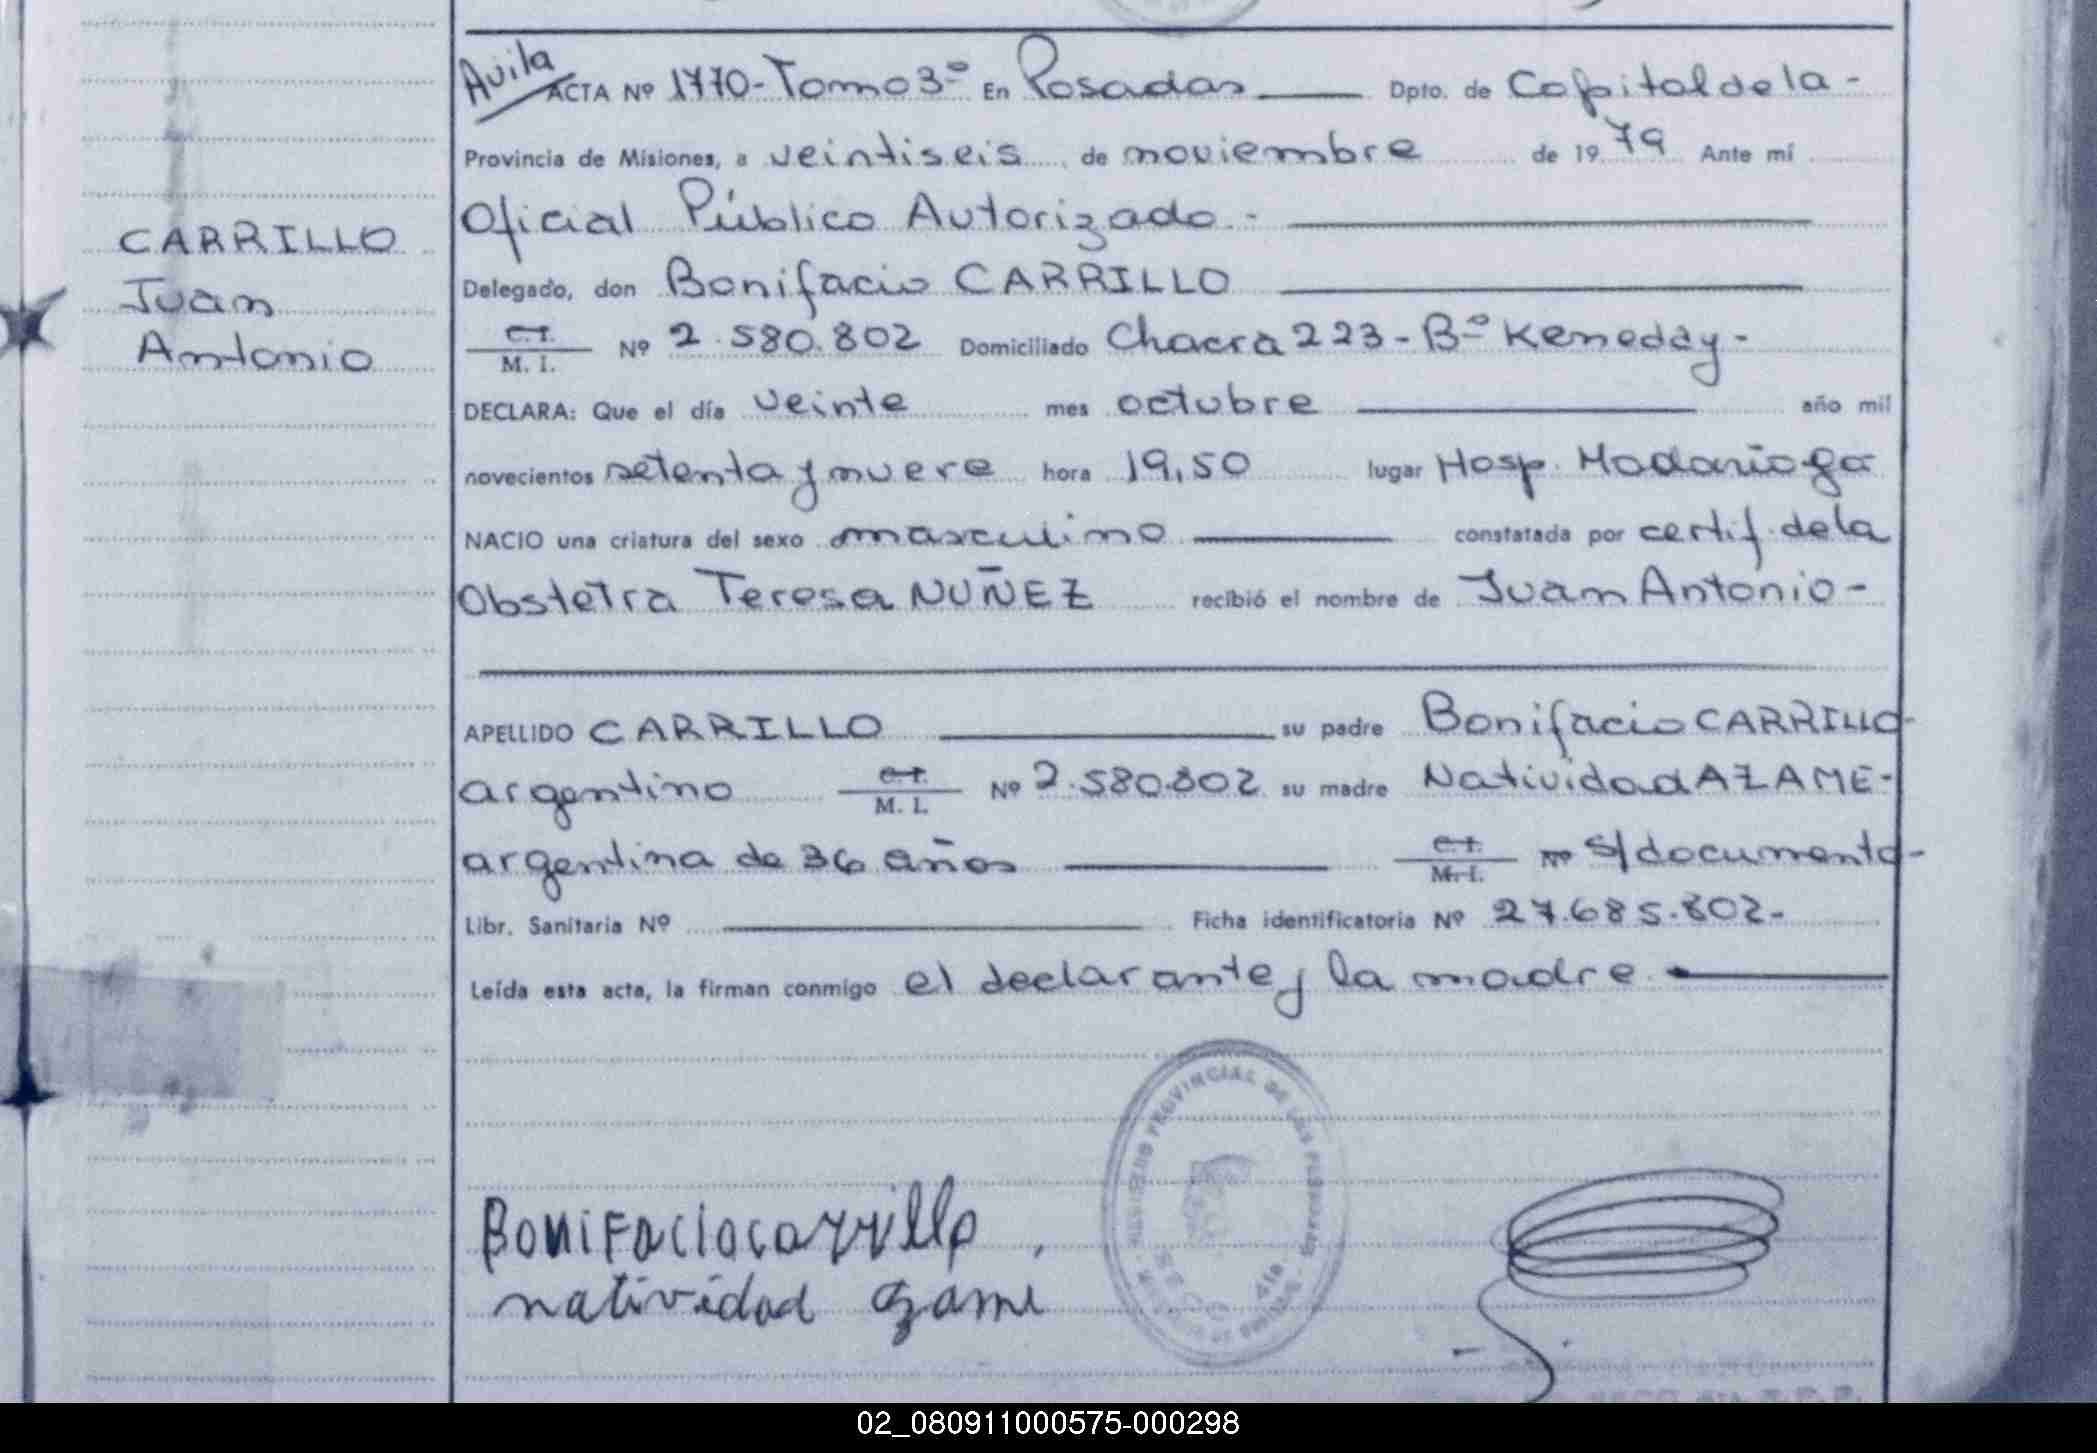 Avila
ACTA Nº 1770-Tomo 3º En Posadas Dpto. de Capital de la -
Provincia de Misiones, a veintiseis de noviembre de 1979 Ante mí
Oficial Público Autorizado.-
CARRILLO
Juan
Antonio
Delegado, don Bonifacio CARRILLO
C.I.
M. I. Nº 2.580.802 Domiciliado Chacra 223 - Bº Keneddy -
DECLARA: Que el día veinte mes octubre año mil
novecientos setenta y nueve hora 19,50 lugar Hosp. Madariaga
NACIO una criatura del sexo masculino constatada por certif. de la
Obstetra Teresa NUÑEZ recibió el nombre de Juan Antonio -
APELLIDO CARRILLO su padre Bonifacio CARRILLO-
argentino C.I. M. I. Nº 2.580.802 su madre Natividad AZAME-
argentina de 36 años C.I. M. I. Nº S/documento-
Libr. Sanitaria Nº Ficha identificatoria Nº 27.685.802-
Leída esta acta, la firman conmigo el declarante y la madre
REGISTRO PROVINCIAL DE LAS PERSONAS
SECC. 4ta
Bonifacio carrillo
natividad azame
02_080911000575-000298